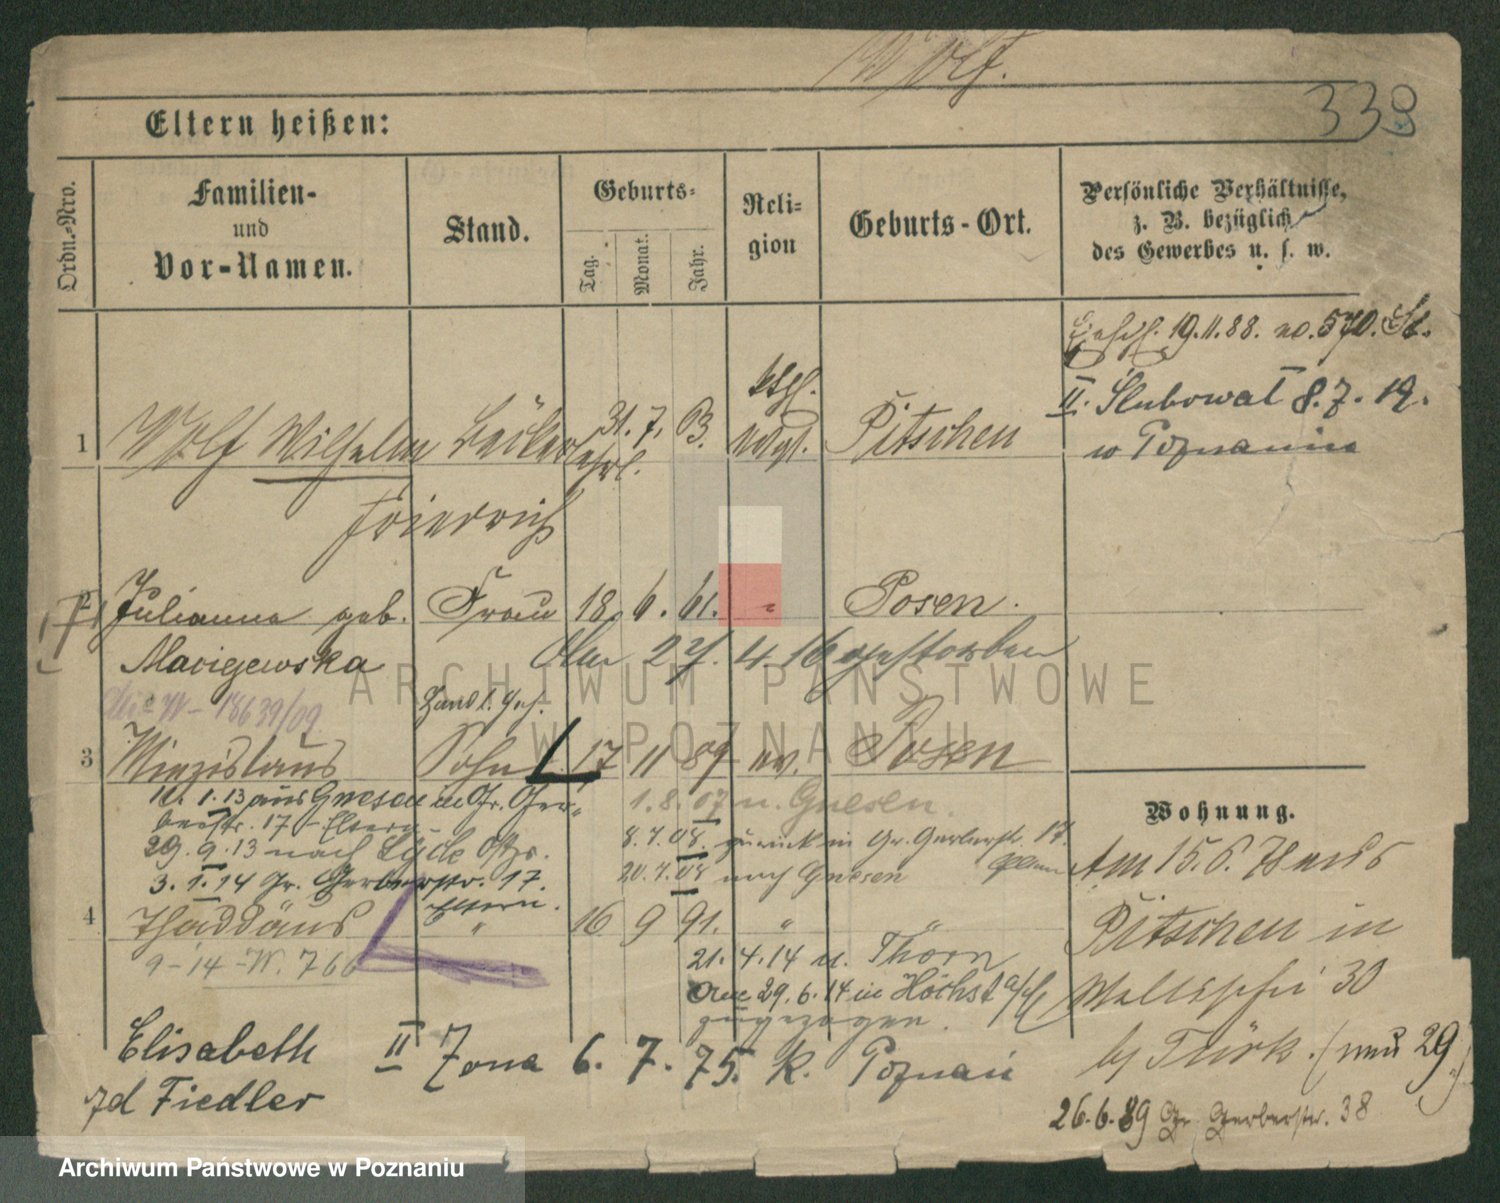 Wolf.
339
Eltern heißen:
Ordn.-Nro.
Familien-
und
Vor-Namen.
Stand.
Geburts-
Tag.
Monat.
Jahr.
Reli-
gion
Geburts-Ort.
Persönliche Verhältnisse,
z. B. bezüglich
des Gewerbes u. s. w.
19.11.88. no. 570.
II. Slubował 8.7.19.
w Poznaniu
1 Wolf Wilhelm 31. 7. Pitschen
Friedrich
2 Julianna geb. Frau 18. 6. 61. Posen.
Maciejewska
27. 4. 16 gestorben
W- 18639/09
3 Miezislaus Sohn 17 11 89 ev. Posen
1.13 aus Gnesen in Gr. Ger-
berstr. 17 - Eltern
1.8.07 n. Gnesen.
29.9.13 nach Lyck
8.7.08. zurück in Gr. Gerberstr. 17.
3.1.14 Gr. Gerberstr. 17.
20.7.08 nach Gnesen
Eltern.
4 Thaddäus " 16 9 91. " "
9-14-W. 766
21.4.14 n. Thorn
29.6.14 in Höchst
zugezogen.
Elisabeth II Żona 6. 7. 75. k. Poznań
zd Fiedler
Wohnung.
Am 15.6.78 aus
Pitschen in
Wallischei 30
by Türk. (neu 29)
26.6.89 Gr. Gerberstr. 38
ARCHIWUM PAŃSTWOWE
W POZNANIU
Archiwum Państwowe w Poznaniu